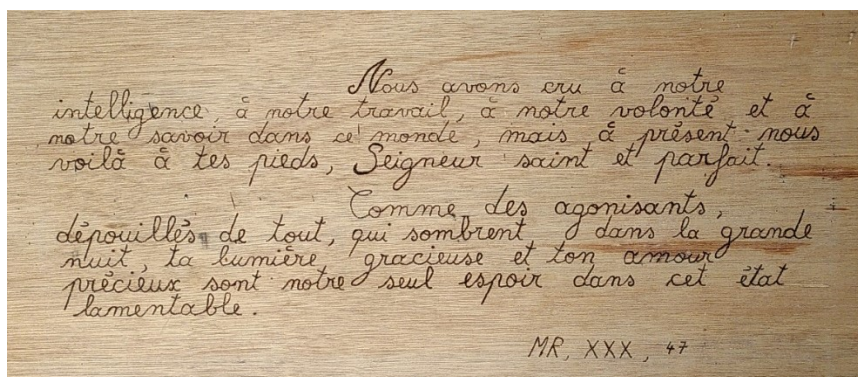 Nous avons cru à notre
intelligence, à notre travail, à notre volonté et à
notre savoir dans ce monde, mais à présent nous
voilà à tes pieds, Seigneur saint et parfait.
Comme des agonisants,
dépouillés de tout, qui sombrent dans la grande
nuit, ta lumière gracieuse et ton amour
précieux sont notre seul espoir dans cet état
lamentable.
MR, XXX, 47